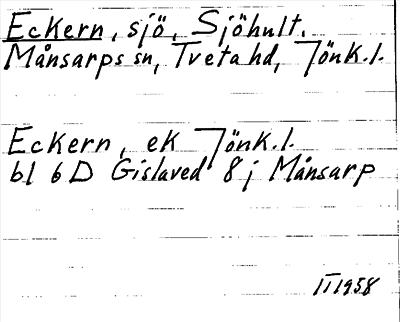 Eckern, sjö, Sjöhult.
Månsarps sn, Tveta hd, Jönk.l.
Eckern, ek Jönk.l.
bl 6D Gislaved 8j Månsarp
II 1958